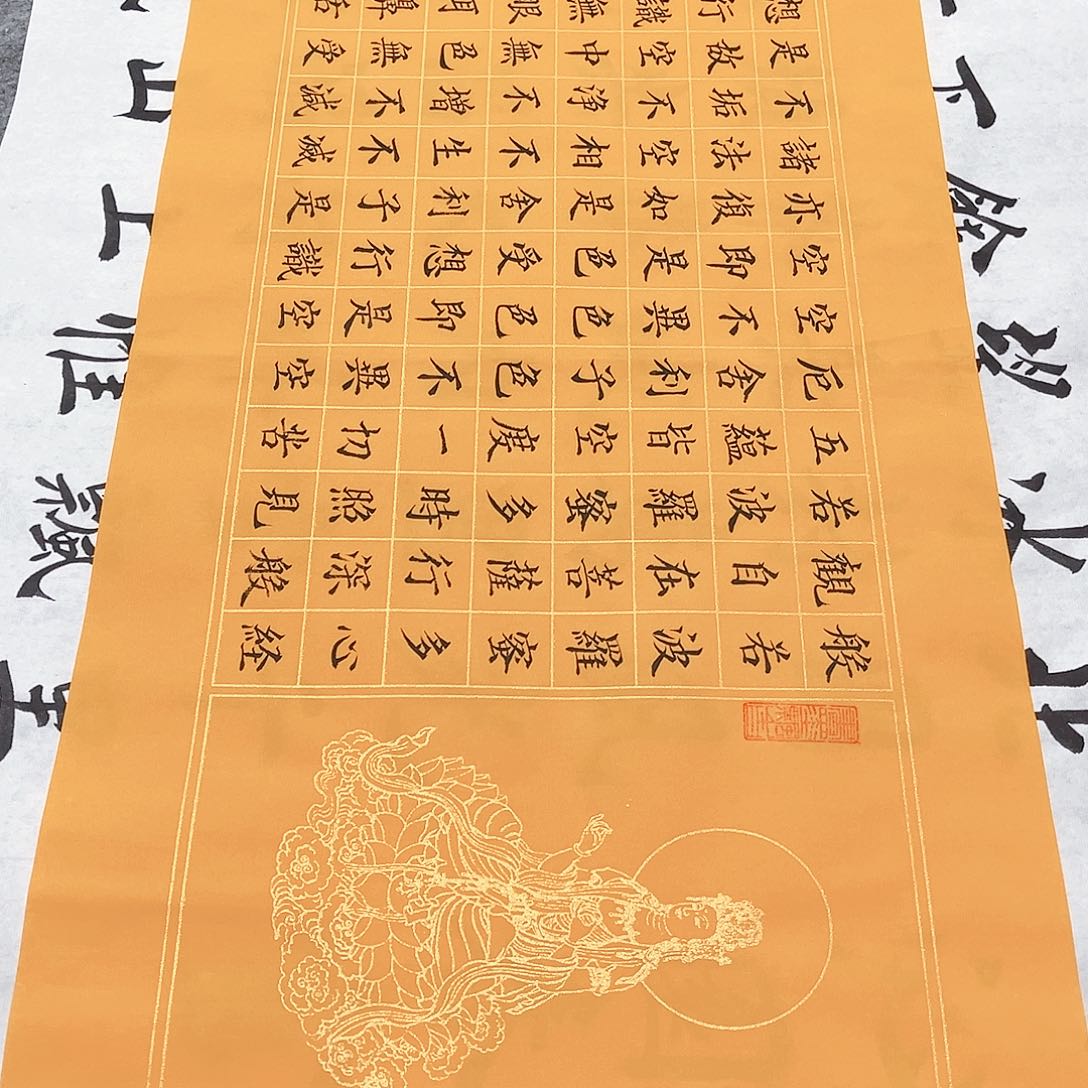 般若波羅蜜多心経
觀自在菩薩行深般
若波羅蜜多時照見
五蘊皆空度一切苦
厄舍利子色不異空
空不異色色即是空
空即是色受想行識
亦復如是舍利子是
諸法空相不生不滅
不垢不淨不增不減
是故空中無色無受
想行識無眼耳鼻舌
飄
惟
餘
上
下
山